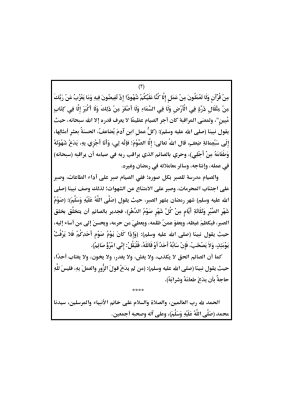 (٢)
مِنْ قُرْآنٍ وَلَا تَعْمَلُونَ مِنْ عَمَلٍ إِلَّا كُنَّا عَلَيْكُمْ شُهُودًا إِذْ تُفِيضُونَ فِيهِ وَمَا يَعْزُبُ عَنْ رَبِّكَ
مِنْ مِثْقَالِ ذَرَّةٍ فِي الْأَرْضِ وَلَا فِي السَّمَاءِ وَلَا أَصْغَرَ مِنْ ذَلِكَ وَلَا أَكْبَرَ إِلَّا فِي كِتَابٍ
مُبِينٍ"، ولمعنى المراقبة كان أجر الصيام عظيمًا لا يعرف قدره إلا الله سبحانه، حيث
يقول نبينا (صلى الله عليه وسلم): (كلُّ عملِ ابنِ آدمَ يُضاعَفُ، الحسنةُ بعشرِ أمثالِها،
إلى سَبْعِمائةِ ضِعْفٍ، قال اللهُ تعالى: إلَّا الصَّوْمَ؛ فإنَّه لِي، وأنا أجزِي به، يَدَعُ شَهْوَتَهُ
وطَعَامَهُ مِنْ أَجْلِي)، وحري بالصائم الذي يراقب ربه في صيامه أن يراقبه (سبحانه)
في عمله، وإنتاجه، وسائر معاملاته في رمضان وغيره.
والصيام مدرسة للصبر بكل صوره؛ ففي الصيام صبر على أداء الطاعات، وصبر
على اجتناب المحرمات، وصبر على الامتناع عن الشهوات؛ لذلك وصف نبينا (صلى
الله عليه وسلم) شهر رمضان بشهر الصبر، حيث يقول (صَلَّى اللَّهُ عَلَيْهِ وَسَلَّمَ): (صَوْمُ
شَهْرِ الصَّبْرِ وثَلَاثَةِ أَيَّامٍ مِنْ كُلِّ شَهْرٍ صَوْمُ الدَّهْرِ)، فجدير بالصائم أن يتخلق بخلق
الصبر، فيكظم غيظه، ويعفو عمن ظلمه، ويعطي من حرمه، ويحسن إلى من أساء إليه،
حيث يقول نبينا (صلى الله عليه وسلم): (وَإِذَا كَانَ يَوْمُ صَوْمِ أَحَدِكُمْ، فَلَا يَرْفُثْ
يَوْمَئِذٍ، وَلَا يَصْخَبْ، فَإِنْ سَابَّهُ أَحَدٌ أَوْ قَاتَلَهُ، فَلْيَقُلْ: إِنِّي امْرُؤٌ صَائِمٌ).
كما أن الصائم الحق لا يكذب، ولا يغش، ولا يغدر، ولا يخون، ولا يغتاب أحدًا،
حيث يقول نبينا (صلى الله عليه وسلم): (من لم يدعْ قولَ الزُّورِ والعملَ به، فليس للهِ
حاجةٌ بأن يدعَ طعامَهُ وشرابَهُ).
****
الحمد لله رب العالمين، والصلاة والسلام على خاتم الأنبياء والمرسلين، سيدنا
محمد (صَلَّى اللَّهُ عَلَيْهِ وَسَلَّمَ)، وعلى آله وصحبه أجمعين.